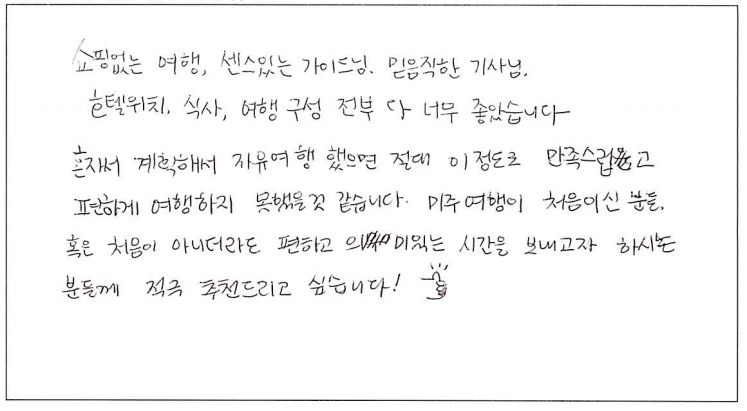 쇼핑없는 여행, 센스있는 가이드님. 믿음직한 기사님.
호텔위치, 식사, 여행 구성 전부 다 너무 좋았습니다
혼자서 계획해서 자유여행 했으면 절대 이정도로 만족스럽고
편하게 여행하지 못했을것 같습니다. 미주여행이 처음이신 분들,
혹은 처음이 아니더라도 편하고 의미있는 시간을 보내고자 하시는
분들께 적극 추천드리고 싶습니다!